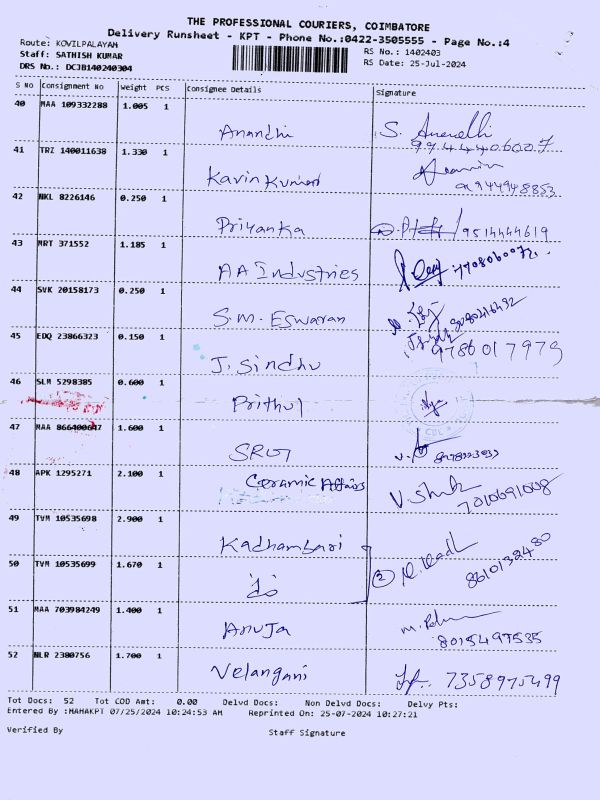 THE PROFESSIONAL COURIERS, COIMBATORE
Delivery Runsheet - KPT - Phone No.:0422-3505555 - Page No.:4
Route: KOVILPALAYAM
Staff: SATHISH KUMAR
DRS No.: DCJB140240304
RS No.: 1402403
RS Date: 25-Jul-2024
S No Consignment No Weight PCS Consignee Details Signature
40 MAA 109332288 1.005 1
Anandhi S. Anandhi
41 TRZ 140011638 1.330 1
Kavin Kumar
9194494 8853
42 NKL 8226146 0.250 1
Priyanka 9514444619
43 MRT 371552 1.185 1
AA Industries
44 SVK 20158173 0.250 1
S.M. Eswaran
45 EDQ 23866323 0.150 1
J. Sindhu 9786017979
46 SLM 5298385 0.600 1
Prithul
47 MAA 866400647 1.600 1
SRG
48 APK 1295271 2.100 1
Ceramic Affairs
7010691008
49 TVM 10535698 2.900 1
Kadhambari
50 TVM 10535699 1.670 1
do 2
8610132480
51 MAA 703984249 1.400 1
Anuja
8015497535
52 NLR 2380756 1.700 1
Velangani 7358975499
Tot Docs: 52 Tot COD Amt: 0.00 Delvd Docs: Non Delvd Docs: Delvy Pts:
Entered By :MAHAKPT 07/25/2024 10:24:53 AM Reprinted On: 25-07-2024 10:27:21
Verified By Staff Signature